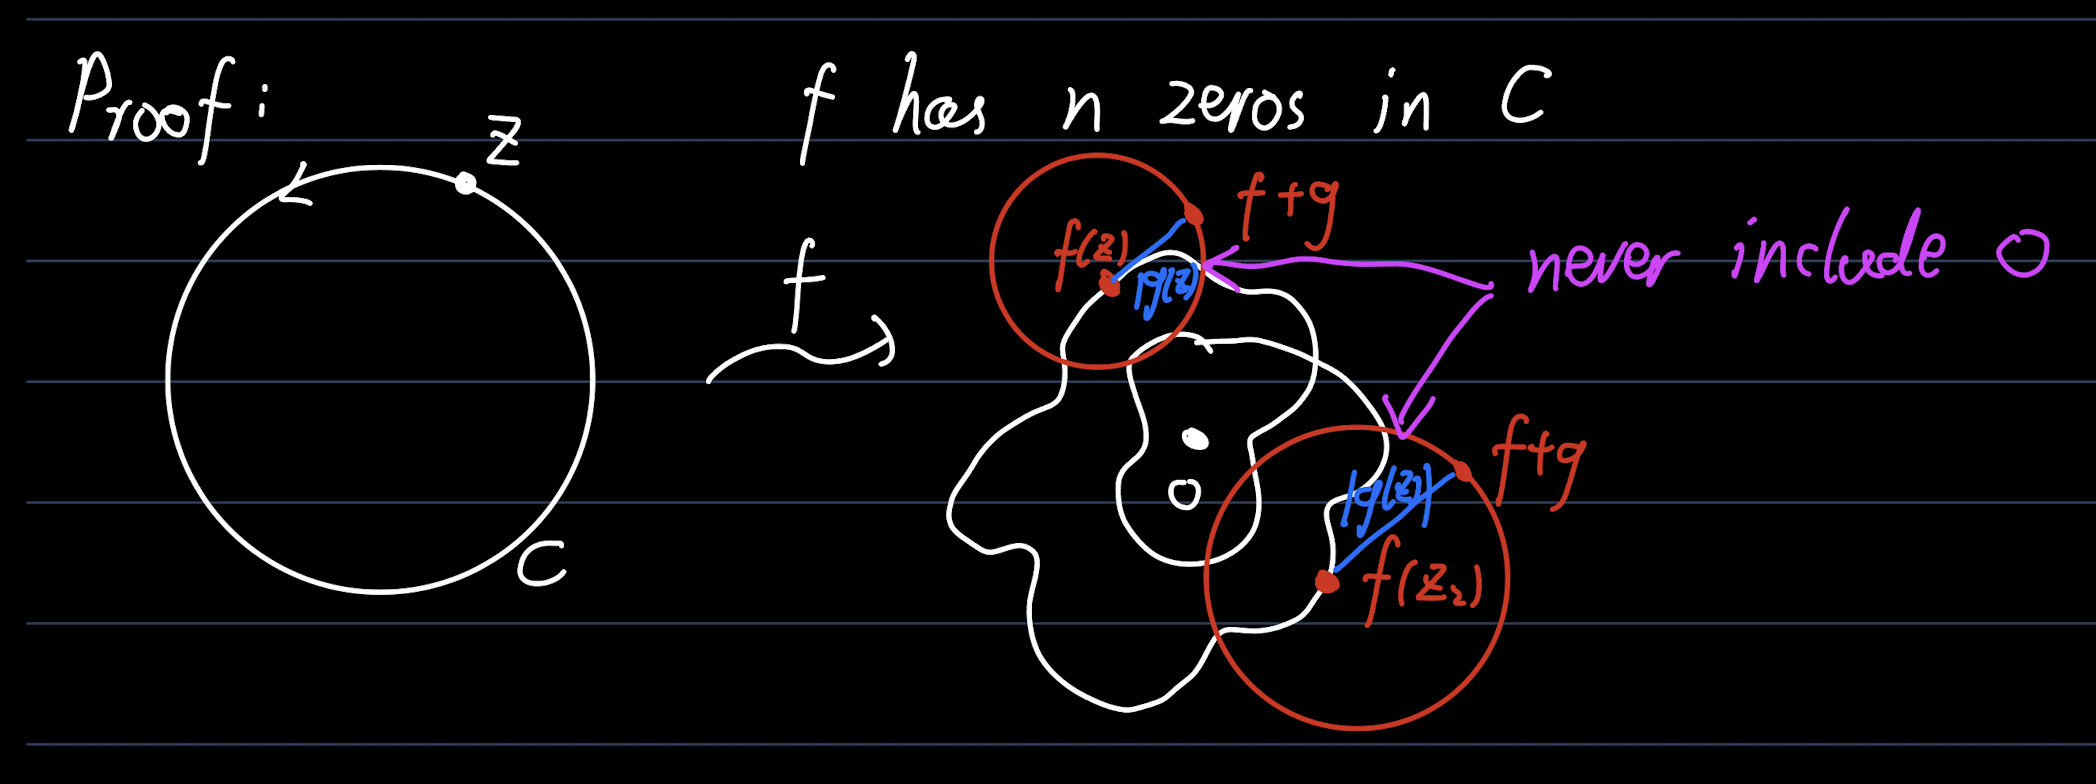 Proof: f has n zeros in C
z
f+g
f(z)
|g(z)|
never include 0
f
f+g
|g(z)|
0
C
f(z₂)